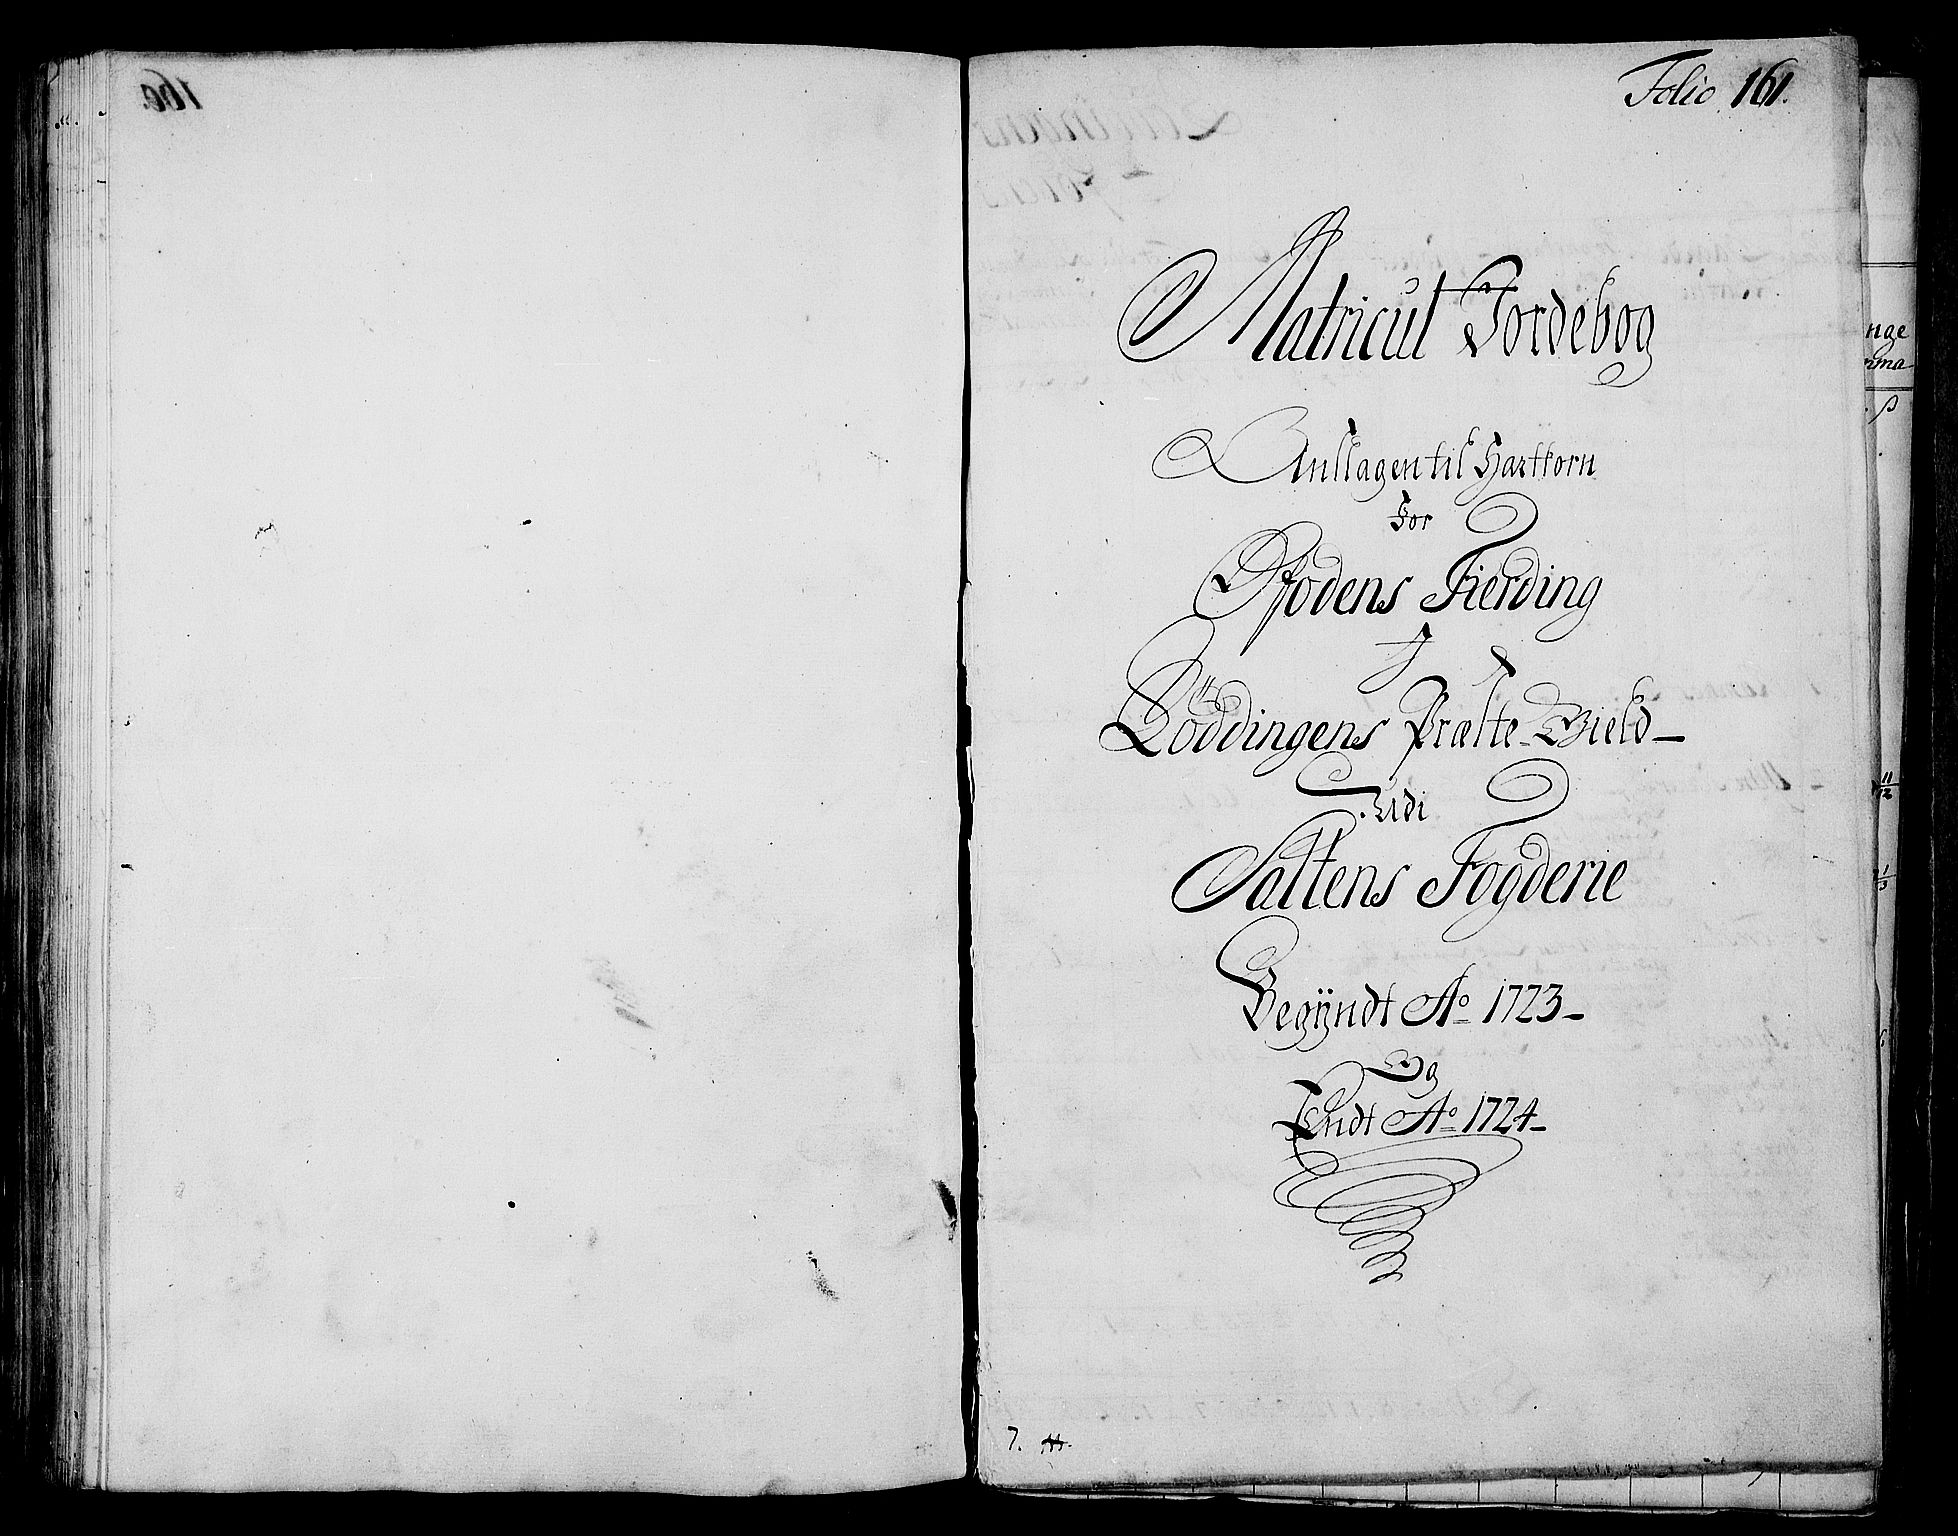 Folio 161.
Matricul Jordebog
Anslagen til Hartkorn
For
Ofodens Fierding
I
Löddingens Præste-Gield
Udi
Saltens Fogderie
Begÿndt Ao 1723
Og
Endt Ao 1724
7.
nge
11/12
1/3